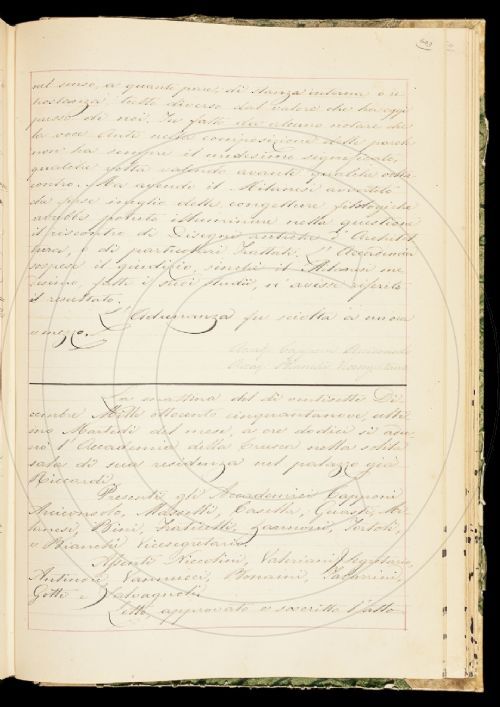 nel senso, a quanto pare, di stanza interna o
tutto diverso dal valore che ha oggi
presso di noi. In fatto da alcuno notare che
la voce Ante nella composizione delle parole
non ha sempre il medesimo significato,
qualche volta valendo avanti, qualche volta
contro. Ma avendo il Milanesi avvertito
che forse meglio delle congetture filologiche
avrebbe potuto illuminare nella questione
il riscontro di Disegni antichi d'Architet
tura, o di particolari Trattati, l'Accademia
sospese il giudizio, finché il Milanesi me
desimo, fatti i suoi studii, ne avesse riferito
il resultato.
L'Adunanza fu sciolta a un'ora
e mezzo.
Accad. Capponi Arciconsolo
La mattina del dì ventisette Di
cembre Mille ottocento cinquantanove, ulti
mo Martedì del mese, a ore dodici si adu
nò l'Accademia della Crusca nella solita
sala di sua residenza nel palazzo già
Riccardi.
Presenti gli Accademici Capponi
Arciconsolo, Casella, Guasti, Mi
lanesi, Bini, Fraticelli, Zannoni, Tortoli,
e Bianchi Vicesegretario.
Assenti Niccolini, Valeriani, Segretario,
Antinori, Vannucci, Bonaini,
Gotti e Salvagnoli.
Letto, approvato e soscritto l'atto